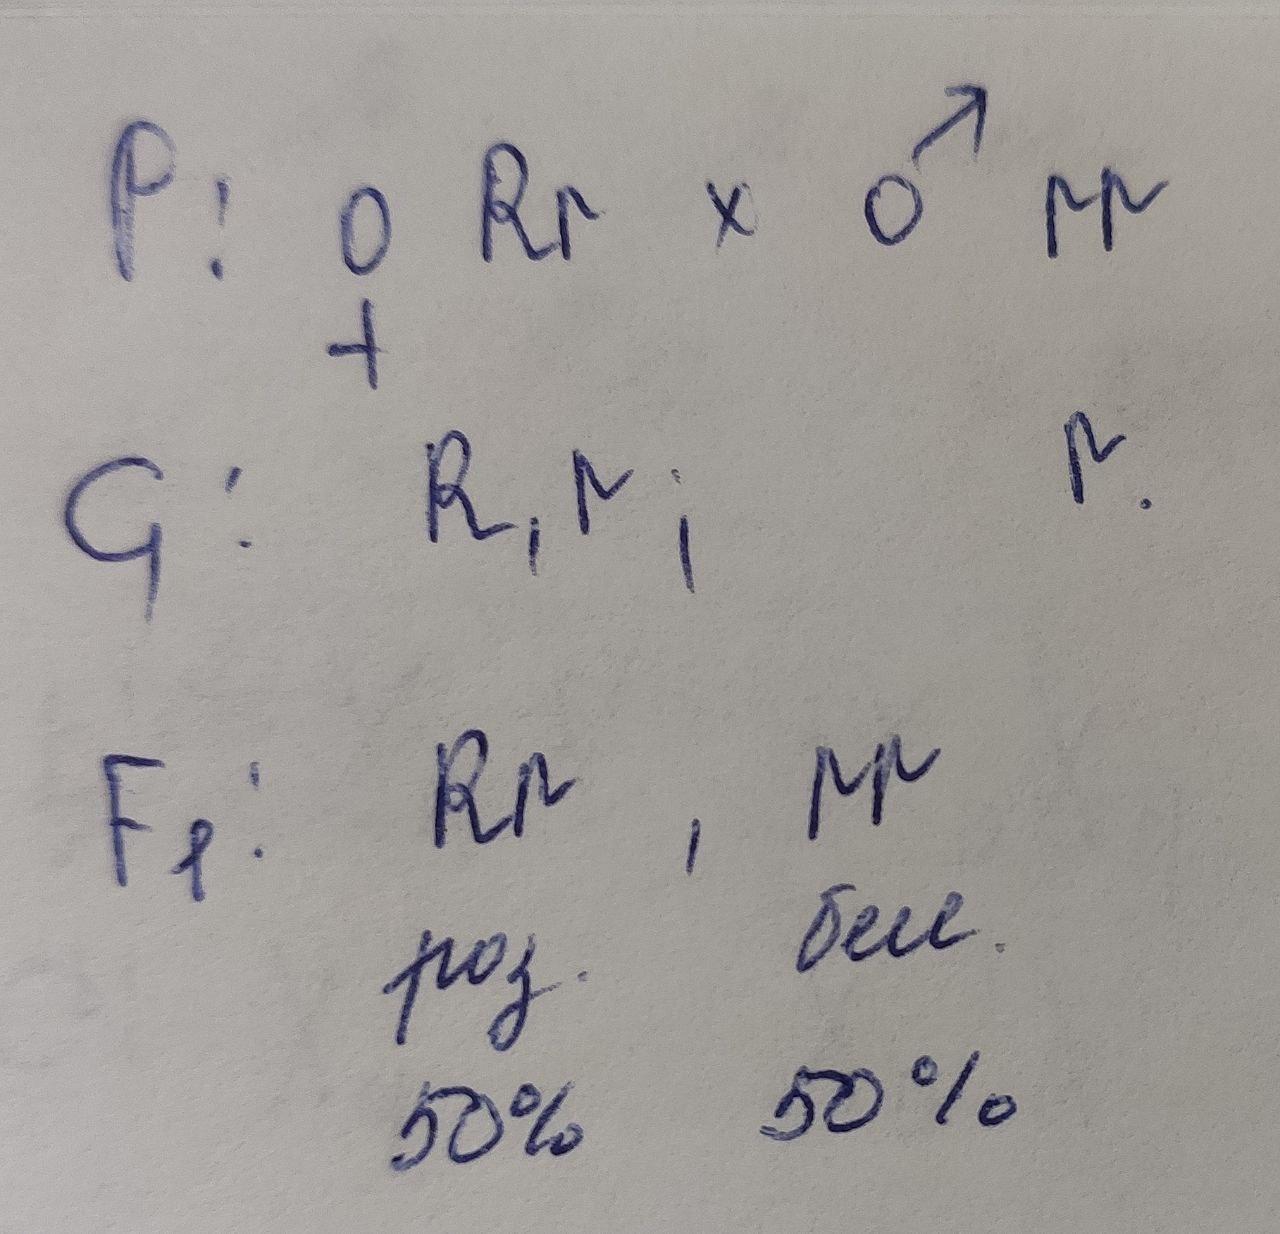 P: ♀ Rr x ♂ rr
G: R, r; r.
F1: Rr, rr
роз. бел.
50% 50%